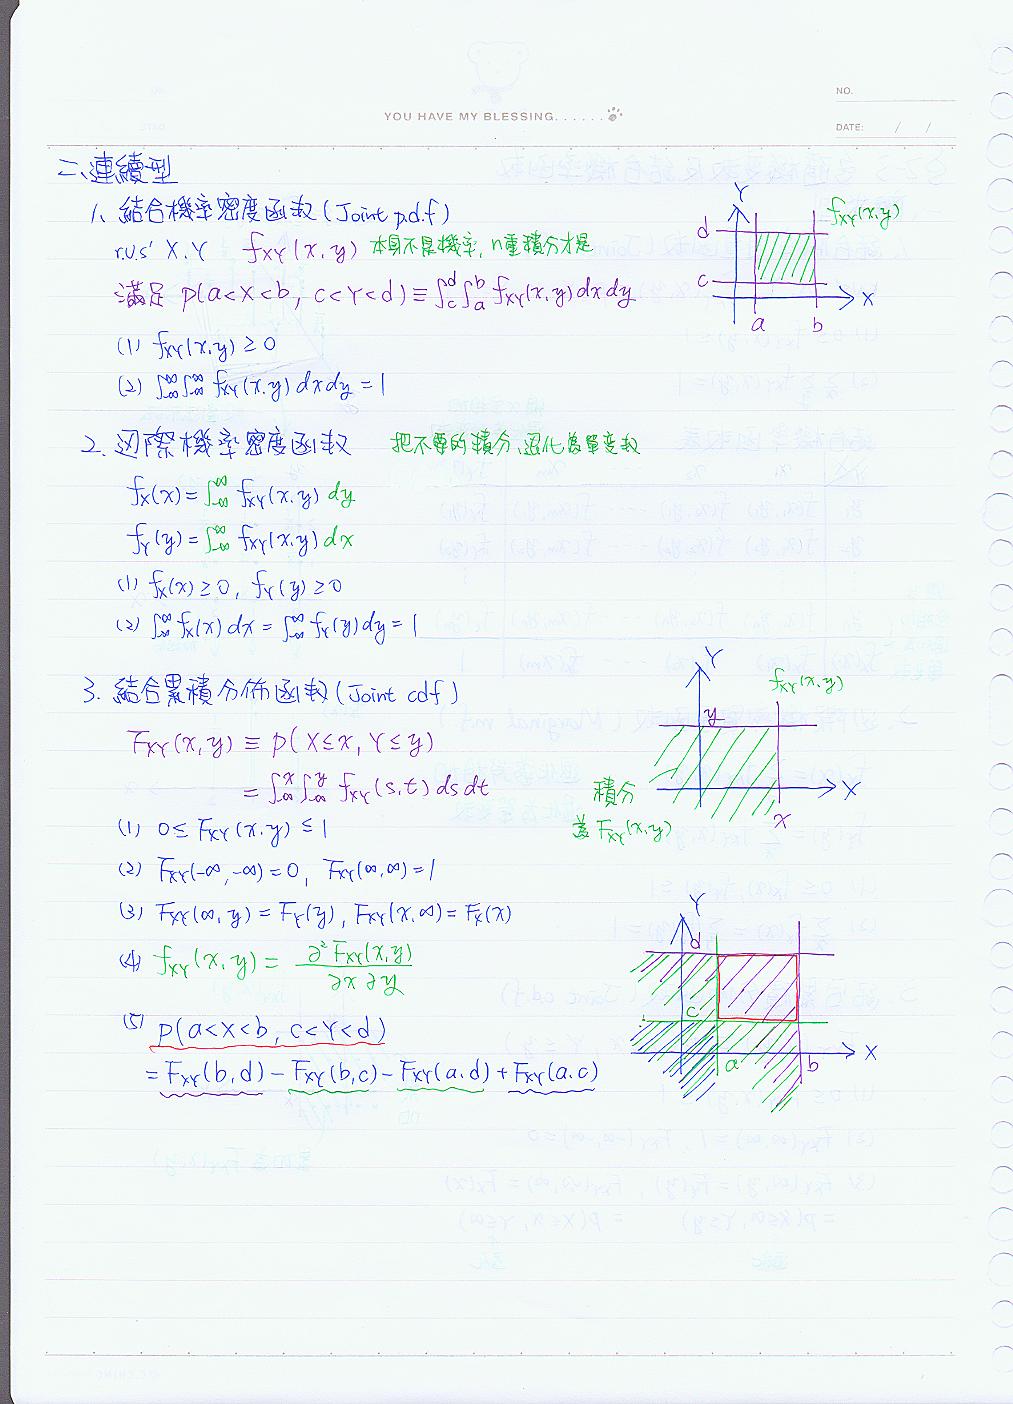 YOU HAVE MY BLESSING......
NO.
DATE: / /
二、連續型
1、結合機率密度函數(Joint p.d.f)
r.v.s' X、Y f_XY(x,y) 本身不是機率,n重積分才是
滿足 P(a<X<b, c<Y<d) ≡ ∫_c^d ∫_a^b f_XY(x,y) dx dy
(1) f_XY(x,y) ≥ 0
(2) ∫_-∞^∞ ∫_-∞^∞ f_XY(x,y) dx dy = 1
Y
f_XY(x,y)
d
c
X
a b
2、邊際機率密度函數 把不要的積分、退化為單變數
f_X(x) = ∫_-∞^∞ f_XY(x,y) dy
f_Y(y) = ∫_-∞^∞ f_XY(x,y) dx
(1) f_X(x) ≥ 0, f_Y(y) ≥ 0
(2) ∫_-∞^∞ f_X(x) dx = ∫_-∞^∞ f_Y(y) dy = 1
3、結合累積分佈函數(Joint cdf)
F_XY(x,y) ≡ P(X≤x, Y≤y)
= ∫_-∞^x ∫_-∞^y f_XY(s,t) ds dt
(1) 0 ≤ F_XY(x,y) ≤ 1
(2) F_XY(-∞,-∞) = 0, F_XY(∞,∞) = 1
(3) F_XY(∞,y) = F_Y(y), F_XY(x,∞) = F_X(x)
(4) f_XY(x,y) = ∂²F_XY(x,y) / ∂x∂y
(5) P(a<X<b, c<Y<d)
= F_XY(b,d) - F_XY(b,c) - F_XY(a,d) + F_XY(a,c)
Y
f_XY(x,y)
y
X
x
積分
為 F_XY(x,y)
Y
d
c
X
a b